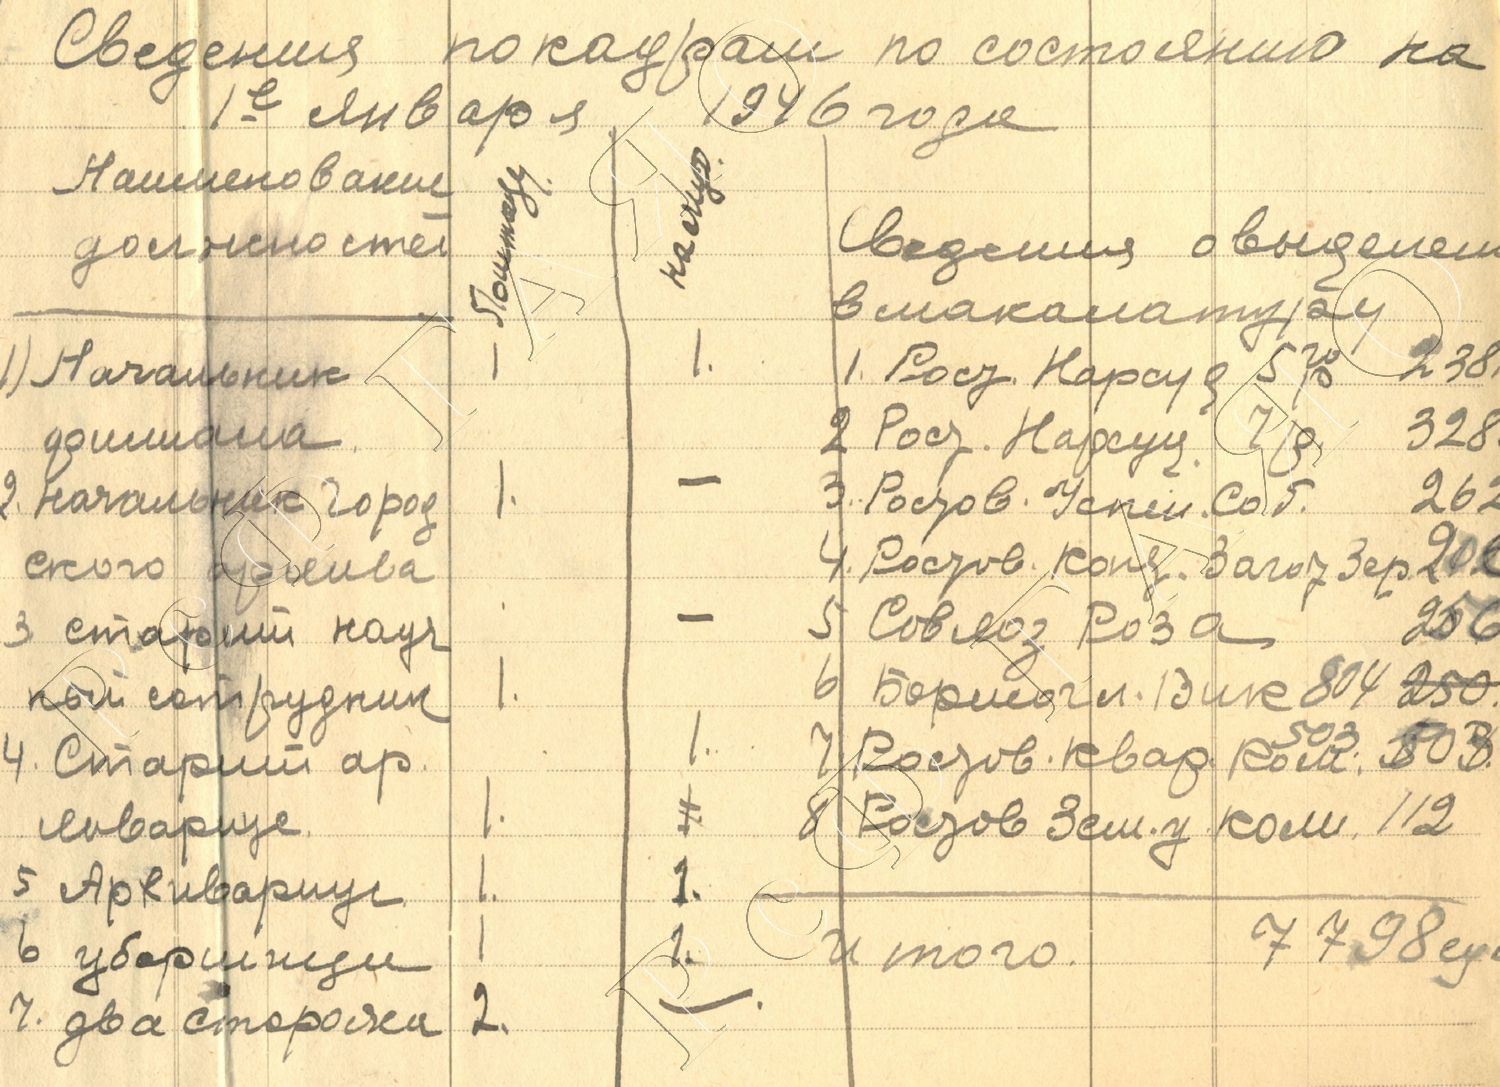 Сведения по кадрам по состоянию на
1е января 1946 года
Наименование
должностей
По штату
на лицо
1) Начальник 1 1.
филиала
2. Начальник город 1. —
ского архива
3 старший науч —
ный сотрудник 1.
4. Старший ар. 1.
хивариус 1.
5 Архивариус 1. 1.
6 уборщицы 1 1.
7. два сторожа 2. —.
Сведения о выделен
в макалатуру
1. Рост. Нарсуд 5го р 238
2 Рост. Нарсуд. 7 р 328.
3. Ростов. Успен. Соб. 262
4. Ростов. Конт. Загот Зер
5 Совхоз Роза 256
6 Бормогл. Вик 804 250.
7 Ростов. Квар. Ком. 503 803.
8 Ростов Зем. у. ком. 112
Итого. 7798
РФ ГАЯО
РФ ГАЯО